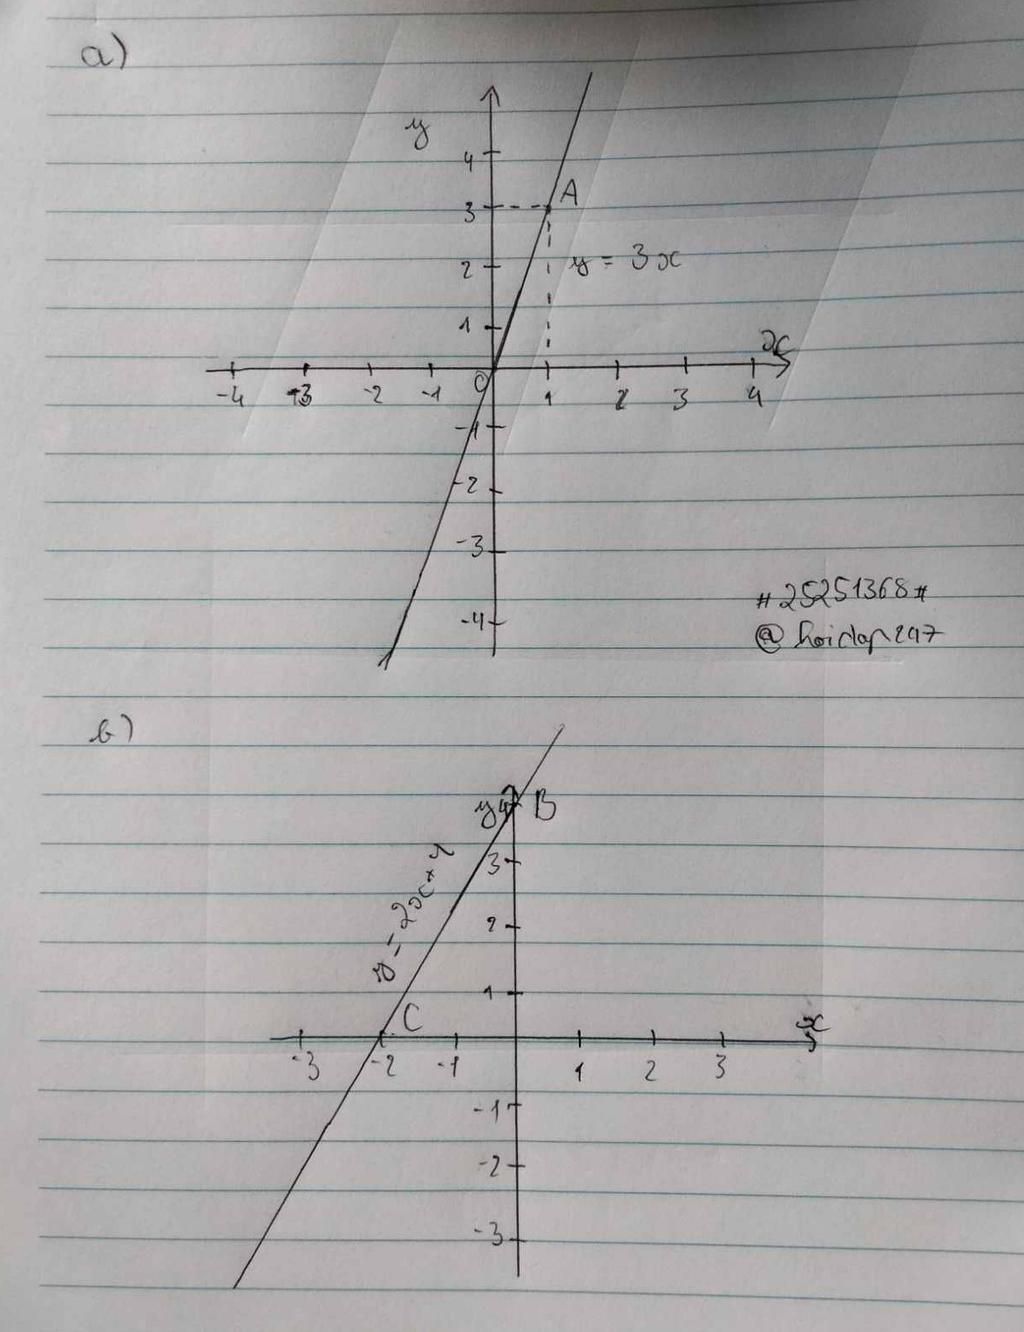 a)
y
4
3
A
2
y = 3x
1
x
-4 -3 -2 -1 0 1 2 3 4
-1
-2
-3
-4
#25251368#
@hoidap247
b)
y 4 B
3
y = 2x+4
2
1
C
x
-3 -2 -1 1 2 3
-1
-2
-3